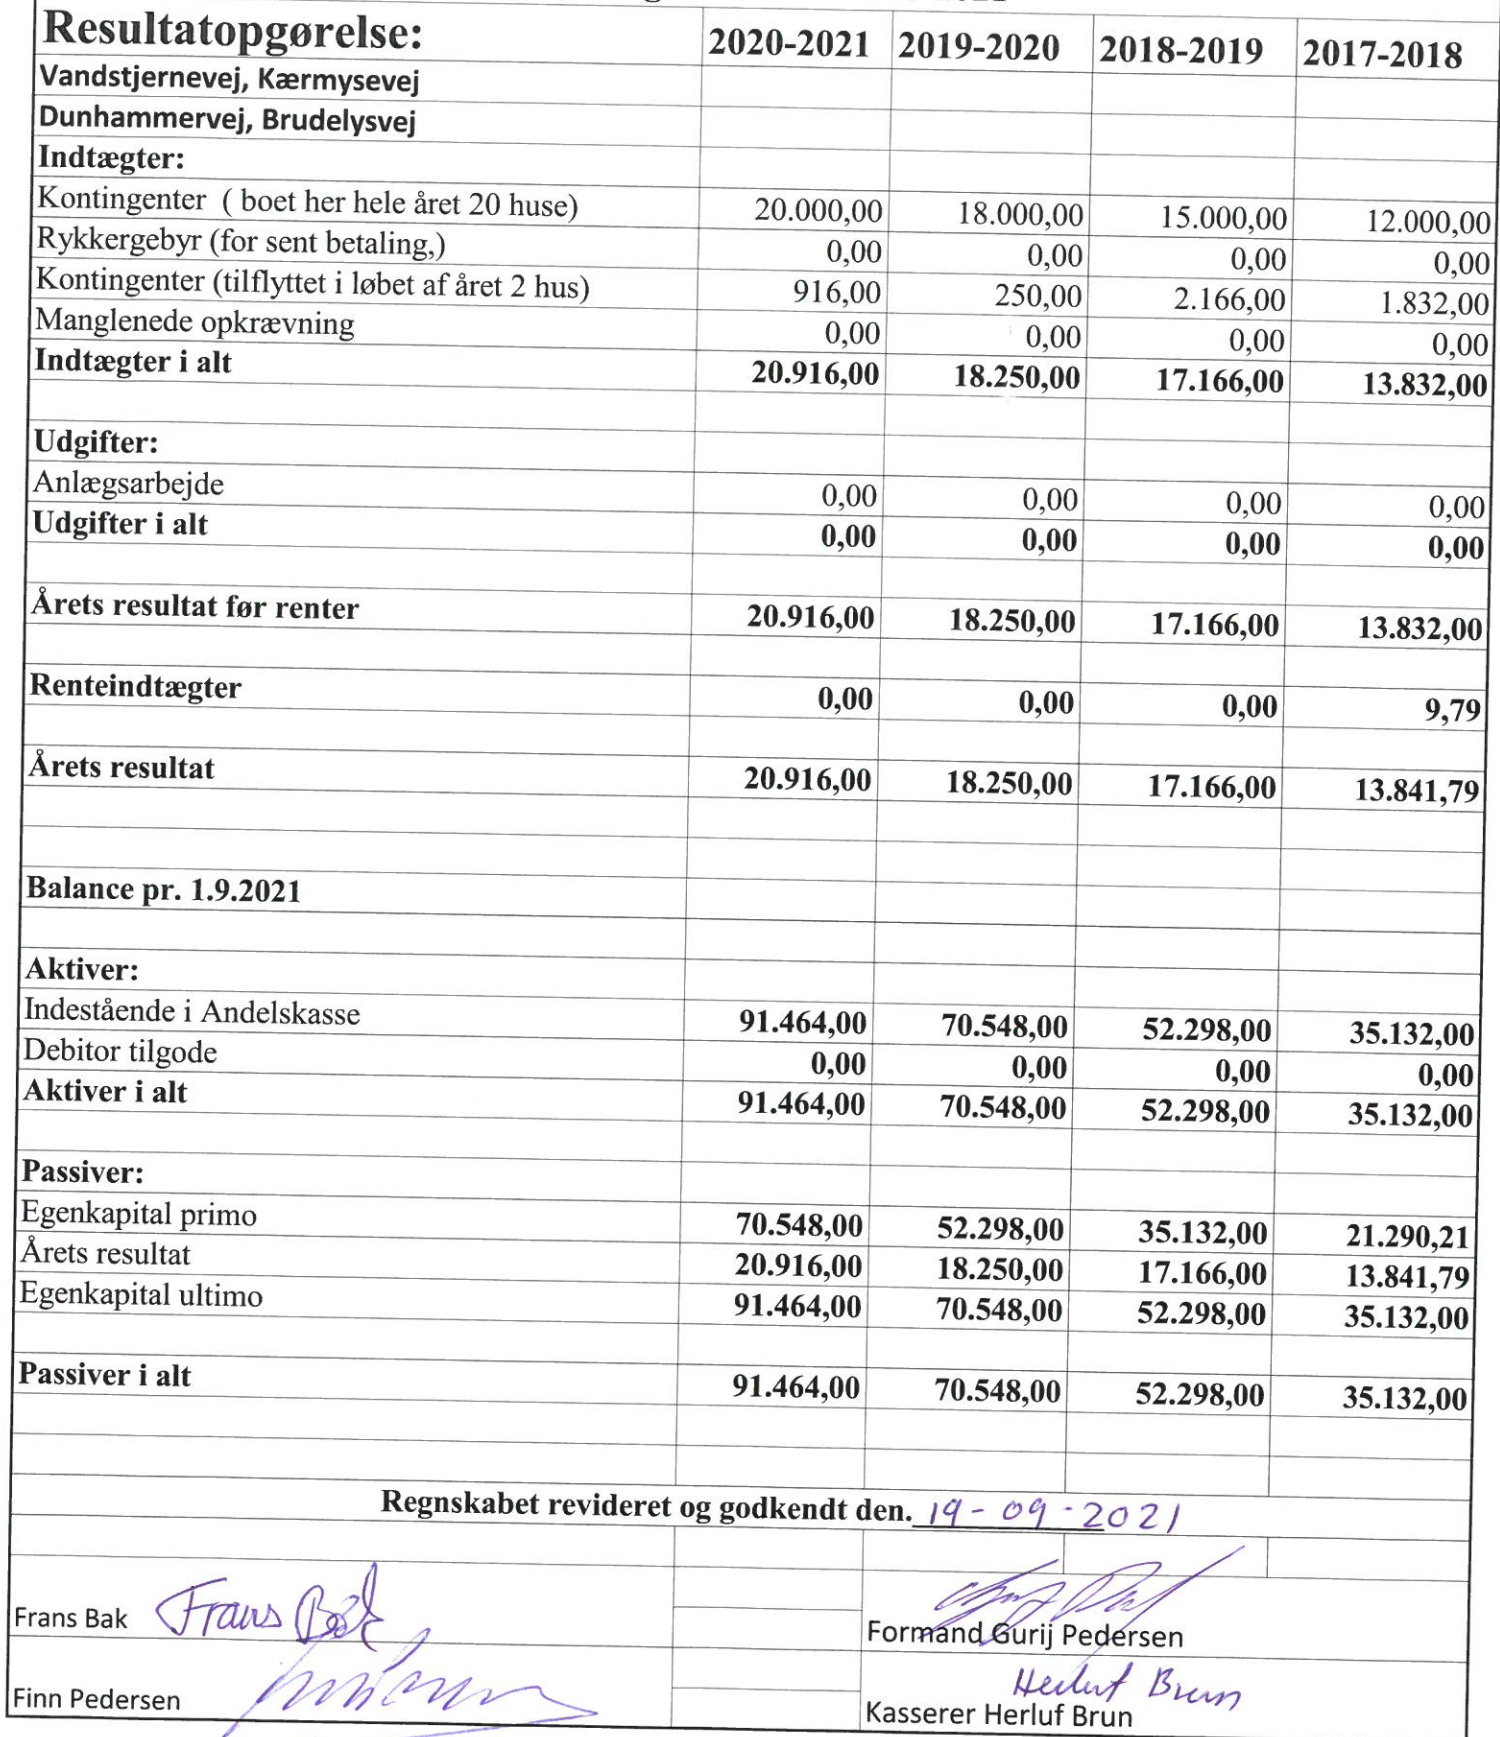 Resultatopgørelse: 2020-2021 2019-2020 2018-2019 2017-2018
Vandstjernevej, Kærmysevej
Dunhammervej, Brudelysvej
Indtægter:
Kontingenter ( boet her hele året 20 huse) 20.000,00 18.000,00 15.000,00 12.000,00
Rykkergebyr (for sent betaling,) 0,00 0,00 0,00 0,00
Kontingenter (tilflyttet i løbet af året 2 hus) 916,00 250,00 2.166,00 1.832,00
Manglenede opkrævning 0,00 0,00 0,00 0,00
Indtægter i alt 20.916,00 18.250,00 17.166,00 13.832,00
Udgifter:
Anlægsarbejde 0,00 0,00 0,00 0,00
Udgifter i alt 0,00 0,00 0,00 0,00
Årets resultat før renter 20.916,00 18.250,00 17.166,00 13.832,00
Renteindtægter 0,00 0,00 0,00 9,79
Årets resultat 20.916,00 18.250,00 17.166,00 13.841,79
Balance pr. 1.9.2021
Aktiver:
Indestående i Andelskasse 91.464,00 70.548,00 52.298,00 35.132,00
Debitor tilgode 0,00 0,00 0,00 0,00
Aktiver i alt 91.464,00 70.548,00 52.298,00 35.132,00
Passiver:
Egenkapital primo 70.548,00 52.298,00 35.132,00 21.290,21
Årets resultat 20.916,00 18.250,00 17.166,00 13.841,79
Egenkapital ultimo 91.464,00 70.548,00 52.298,00 35.132,00
Passiver i alt 91.464,00 70.548,00 52.298,00 35.132,00
Regnskabet revideret og godkendt den. 19-09-2021
Frans Bak Frans Bak
Formand Gurij Pedersen
Herluf Brun
Finn Pedersen
Kasserer Herluf Brun